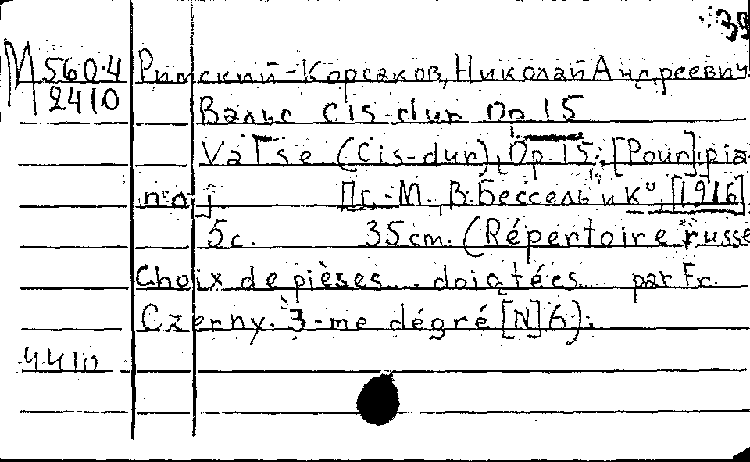 39
М 560.4 Римский-Корсаков, Николай Андреевич
2410 Вальс Cis-dur Op. 15
Valse (Cis-dur), Op. 15, [Pour] pia-
no]. Пг.-М. В. Бессель и К°, [1916]
5с. 35 cm. (Répertoire russe
Choix de pièses doigtées par Fr.
Czerny. 3-me dégré [N] 6).
4410